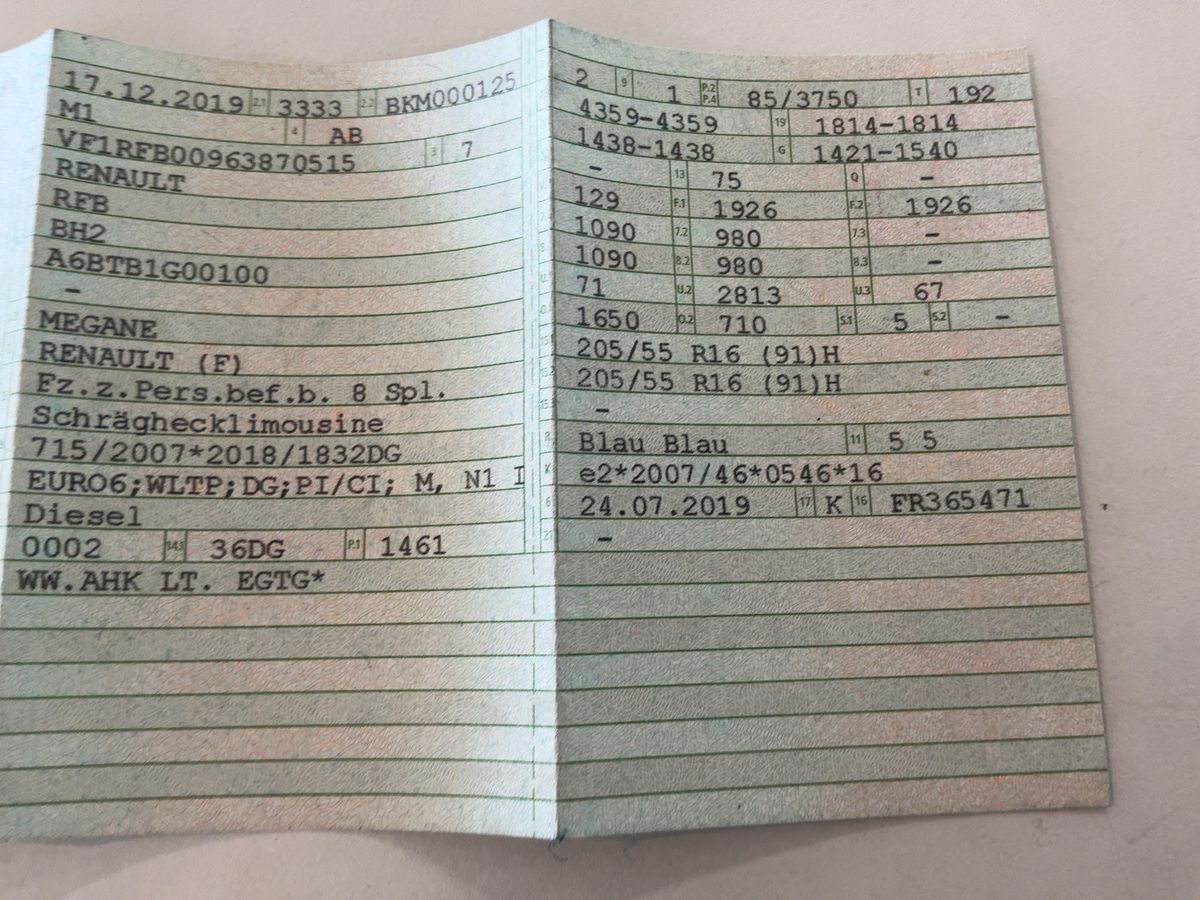 17.12.2019 2.1 3333 2.2 BKM000125
M1 4 AB
VF1RFB00963870515 3 7
RENAULT
RFB
BH2
A6BTB1G00100
–
MEGANE
RENAULT (F)
Fz.z.Pers.bef.b. 8 Spl.
Schräghecklimousine
715/2007*2018/1832DG
EURO6;WLTP;DG;PI/CI; M, N1 I
Diesel
0002 14.1 36DG P.1 1461
WW.AHK LT. EGTG*
2 9 1 P.2 P.4 85/3750 T 192
4359-4359 19 1814-1814
1438-1438 G 1421-1540
– 13 75 Q –
129 F.1 1926 F.2 1926
1090 7.2 980 7.3 –
1090 8.2 980 8.3 –
71 U.2 2813 U.3 67
1650 O.2 710 S.1 5 S.2 –
205/55 R16 (91)H
205/55 R16 (91)H
–
R Blau Blau 11 5 5
K e2*2007/46*0546*16
6 24.07.2019 17 K 16 FR365471
21 –